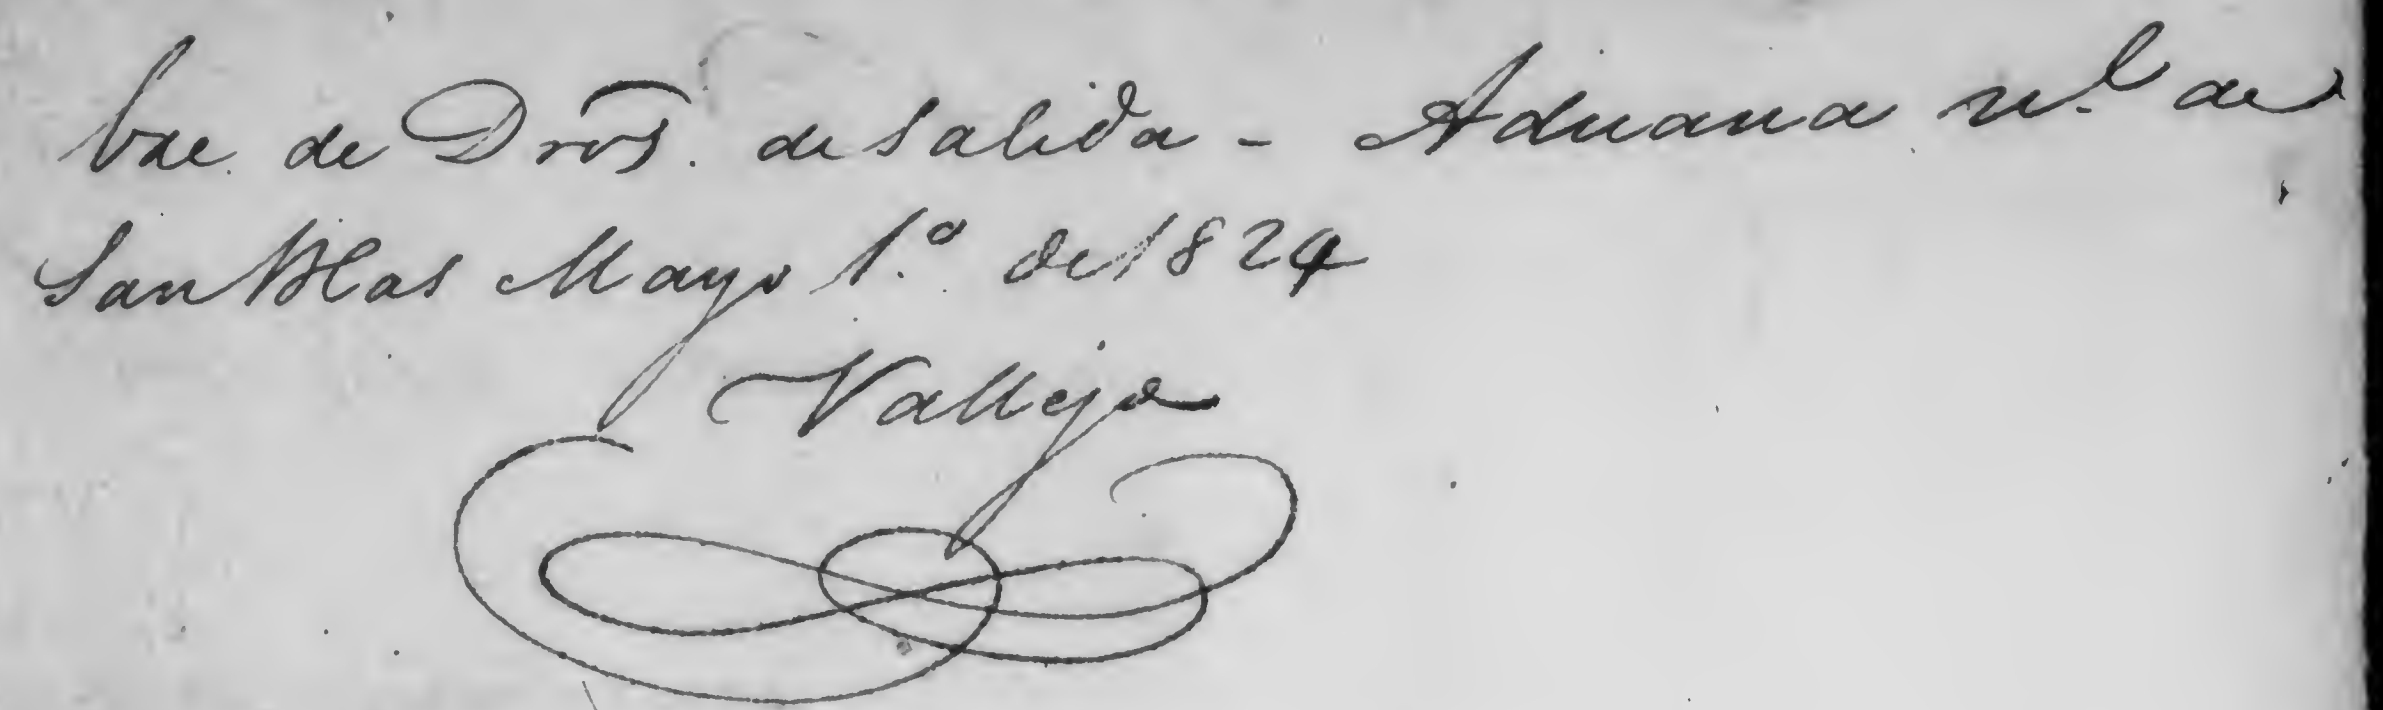 bre de Dros. de salida - Aduana nl. de
San Blas Mayo 1.º de 1824
Vallejo